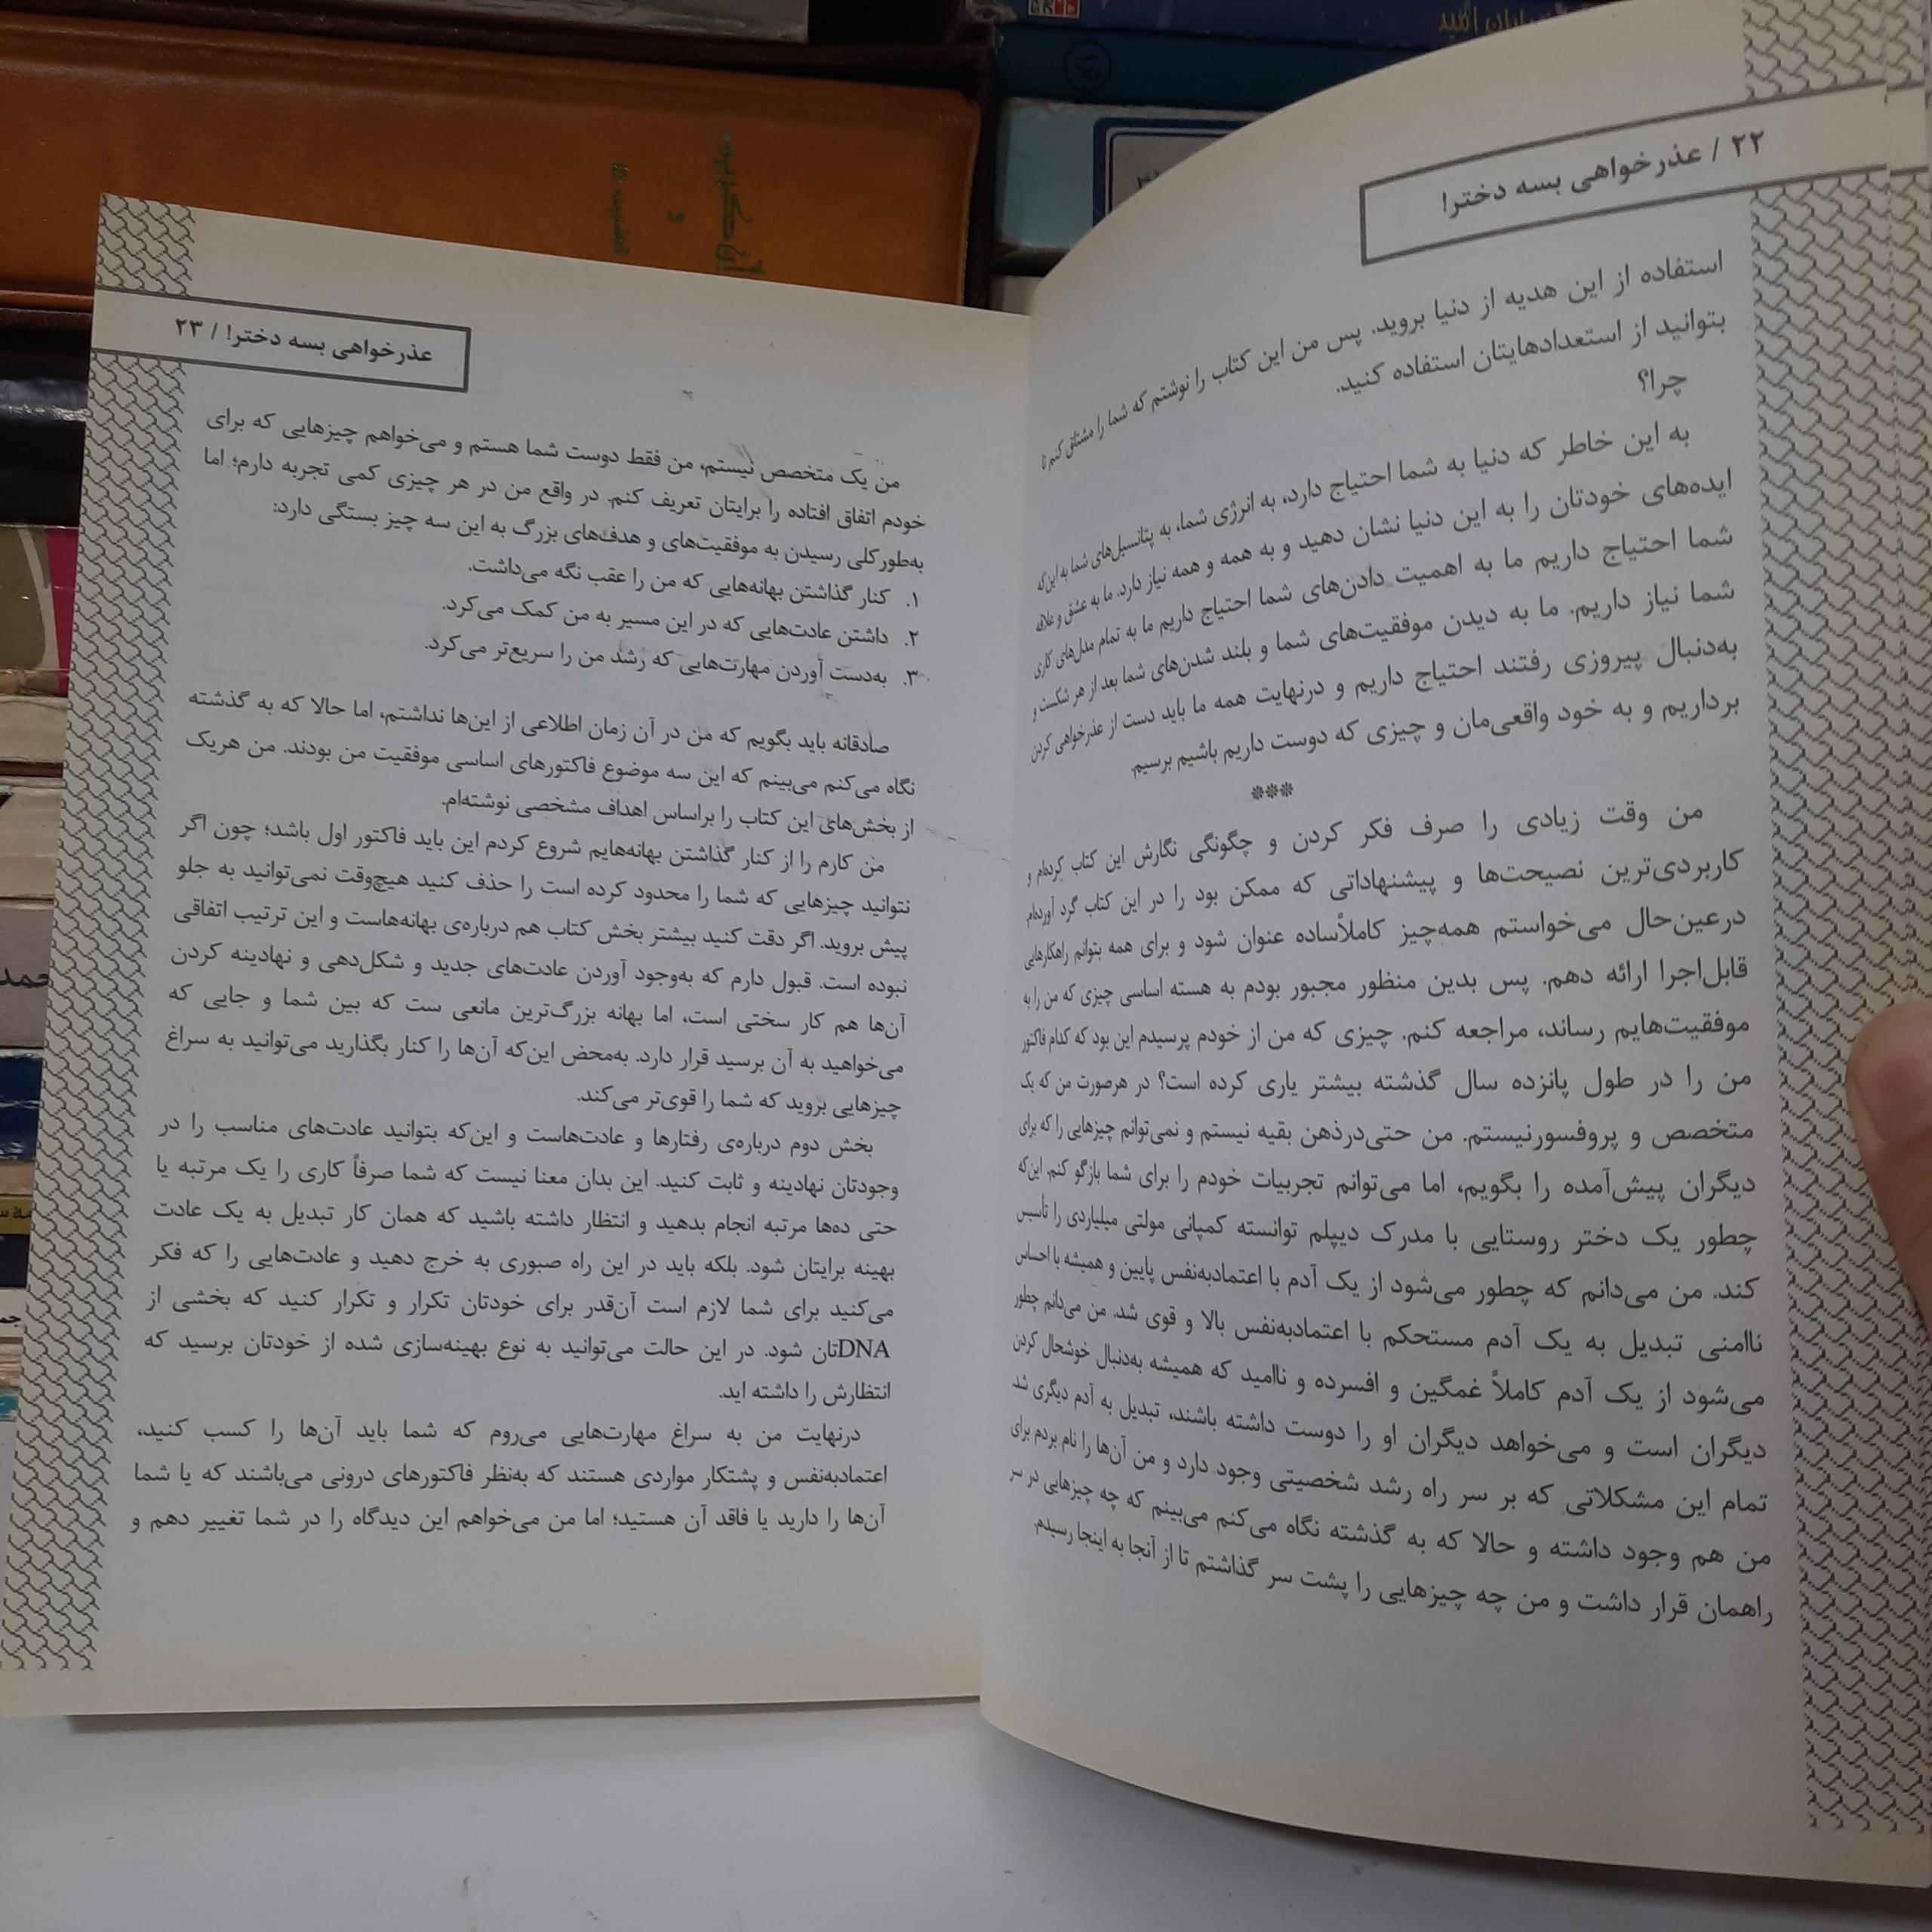 ۲۲ / عذرخواهی بسه دختر!
استفاده از این هدیه از دنیا بروید. پس من این کتاب را نوشتم که شما را مشتاق کنم تا
بتوانید از استعدادهایتان استفاده کنید.
چرا؟
به این خاطر که دنیا به شما احتیاج دارد، به انرژی شما، به پتانسیل‌های شما به این‌که
ایده‌های خودتان را به این دنیا نشان دهید و به همه و همه نیاز دارد. ما به عشق و علاقه
شما احتیاج داریم ما به اهمیت دادن‌های شما احتیاج داریم ما به تمام مدل‌های کاری
شما نیاز داریم. ما به دیدن موفقیت‌های شما و بلند شدن‌های شما بعد از هر شکست و
به‌دنبال پیروزی رفتند احتیاج داریم و درنهایت همه ما باید دست از عذرخواهی کردن
برداریم و به خود واقعی‌مان و چیزی که دوست داریم باشیم برسیم.
***
من وقت زیادی را صرف فکر کردن و چگونگی نگارش این کتاب کرده‌ام و
کاربردی‌ترین نصیحت‌ها و پیشنهاداتی که ممکن بود را در این کتاب گرد آورده‌ام.
درعین‌حال می‌خواستم همه‌چیز کاملاًساده عنوان شود و برای همه بتوانم راهکارهایی
قابل‌اجرا ارائه دهم. پس بدین منظور مجبور بودم به هسته اساسی چیزی که من را به
موفقیت‌هایم رساند، مراجعه کنم. چیزی که من از خودم پرسیدم این بود که کدام فاکتور
من را در طول پانزده سال گذشته بیشتر یاری کرده است؟ در هرصورت من که یک
متخصص و پروفسورنیستم. من حتی‌درذهن بقیه نیستم و نمی‌توانم چیزهایی را که برای
دیگران پیش‌آمده را بگویم، اما می‌توانم تجربیات خودم را برای شما بازگو کنم. این‌که
چطور یک دختر روستایی با مدرک دیپلم توانسته کمپانی مولتی میلیاردی را تأسیس
کند. من می‌دانم که چطور می‌شود از یک آدم با اعتمادبه‌نفس پایین و همیشه با احساس
ناامنی تبدیل به یک آدم مستحکم با اعتمادبه‌نفس بالا و قوی شد. من می‌دانم چطور
می‌شود از یک آدم کاملاً غمگین و افسرده و ناامید که همیشه به‌دنبال خوشحال کردن
دیگران است و می‌خواهد دیگران او را دوست داشته باشند، تبدیل به آدم دیگری شد
تمام این مشکلاتی که بر سر راه رشد شخصیتی وجود دارد و من آن‌ها را نام بردم برای
من هم وجود داشته و حالا که به گذشته نگاه می‌کنم می‌بینم که چه چیزهایی در سر
راهمان قرار داشت و من چه چیزهایی را پشت سر گذاشتم تا از آنجا به اینجا رسیدم.
عذرخواهی بسه دختر! / ۲۳
من یک متخصص نیستم، من فقط دوست شما هستم و می‌خواهم چیزهایی که برای
خودم اتفاق افتاده را برایتان تعریف کنم. در واقع من در هر چیزی کمی تجربه دارم؛ اما
به‌طورکلی رسیدن به موفقیت‌های و هدف‌های بزرگ به این سه چیز بستگی دارد:
۱. کنار گذاشتن بهانه‌هایی که من را عقب نگه می‌داشت.
۲. داشتن عادت‌هایی که در این مسیر به من کمک می‌کرد.
۳. به‌دست آوردن مهارت‌هایی که رشد من را سریع‌تر می‌کرد.
صادقانه باید بگویم که من در آن زمان اطلاعی از این‌ها نداشتم، اما حالا که به گذشته
نگاه می‌کنم می‌بینم که این سه موضوع فاکتورهای اساسی موفقیت من بودند. من هریک
از بخش‌های این کتاب را براساس اهداف مشخصی نوشته‌ام.
من کارم را از کنار گذاشتن بهانه‌هایم شروع کردم این باید فاکتور اول باشد؛ چون اگر
نتوانید چیزهایی که شما را محدود کرده است را حذف کنید هیچ‌وقت نمی‌توانید به جلو
پیش بروید. اگر دقت کنید بیشتر بخش کتاب هم درباره‌ی بهانه‌هاست و این ترتیب اتفاقی
نبوده است. قبول دارم که به‌وجود آوردن عادت‌های جدید و شکل‌دهی و نهادینه کردن
آن‌ها هم کار سختی است، اما بهانه بزرگ‌ترین مانعی ست که بین شما و جایی که
می‌خواهید به آن برسید قرار دارد. به‌محض این‌که آن‌ها را کنار بگذارید می‌توانید به سراغ
چیزهایی بروید که شما را قوی‌تر می‌کند.
بخش دوم درباره‌ی رفتارها و عادت‌هاست و این‌که بتوانید عادت‌های مناسب را در
وجودتان نهادینه و ثابت کنید. این بدان معنا نیست که شما صرفاً کاری را یک مرتبه یا
حتی ده‌ها مرتبه انجام بدهید و انتظار داشته باشید که همان کار تبدیل به یک عادت
بهینه برایتان شود. بلکه باید در این راه صبوری به خرج دهید و عادت‌هایی را که فکر
می‌کنید برای شما لازم است آن‌قدر برای خودتان تکرار و تکرار کنید که بخشی از
DNAتان شود. در این حالت می‌توانید به نوع بهینه‌سازی شده از خودتان برسید که
انتظارش را داشته اید.
درنهایت من به سراغ مهارت‌هایی می‌روم که شما باید آن‌ها را کسب کنید،
اعتمادبه‌نفس و پشتکار مواردی هستند که به‌نظر فاکتورهای درونی می‌باشند که یا شما
آن‌ها را دارید یا فاقد آن هستید؛ اما من می‌خواهم این دیدگاه را در شما تغییر دهم و